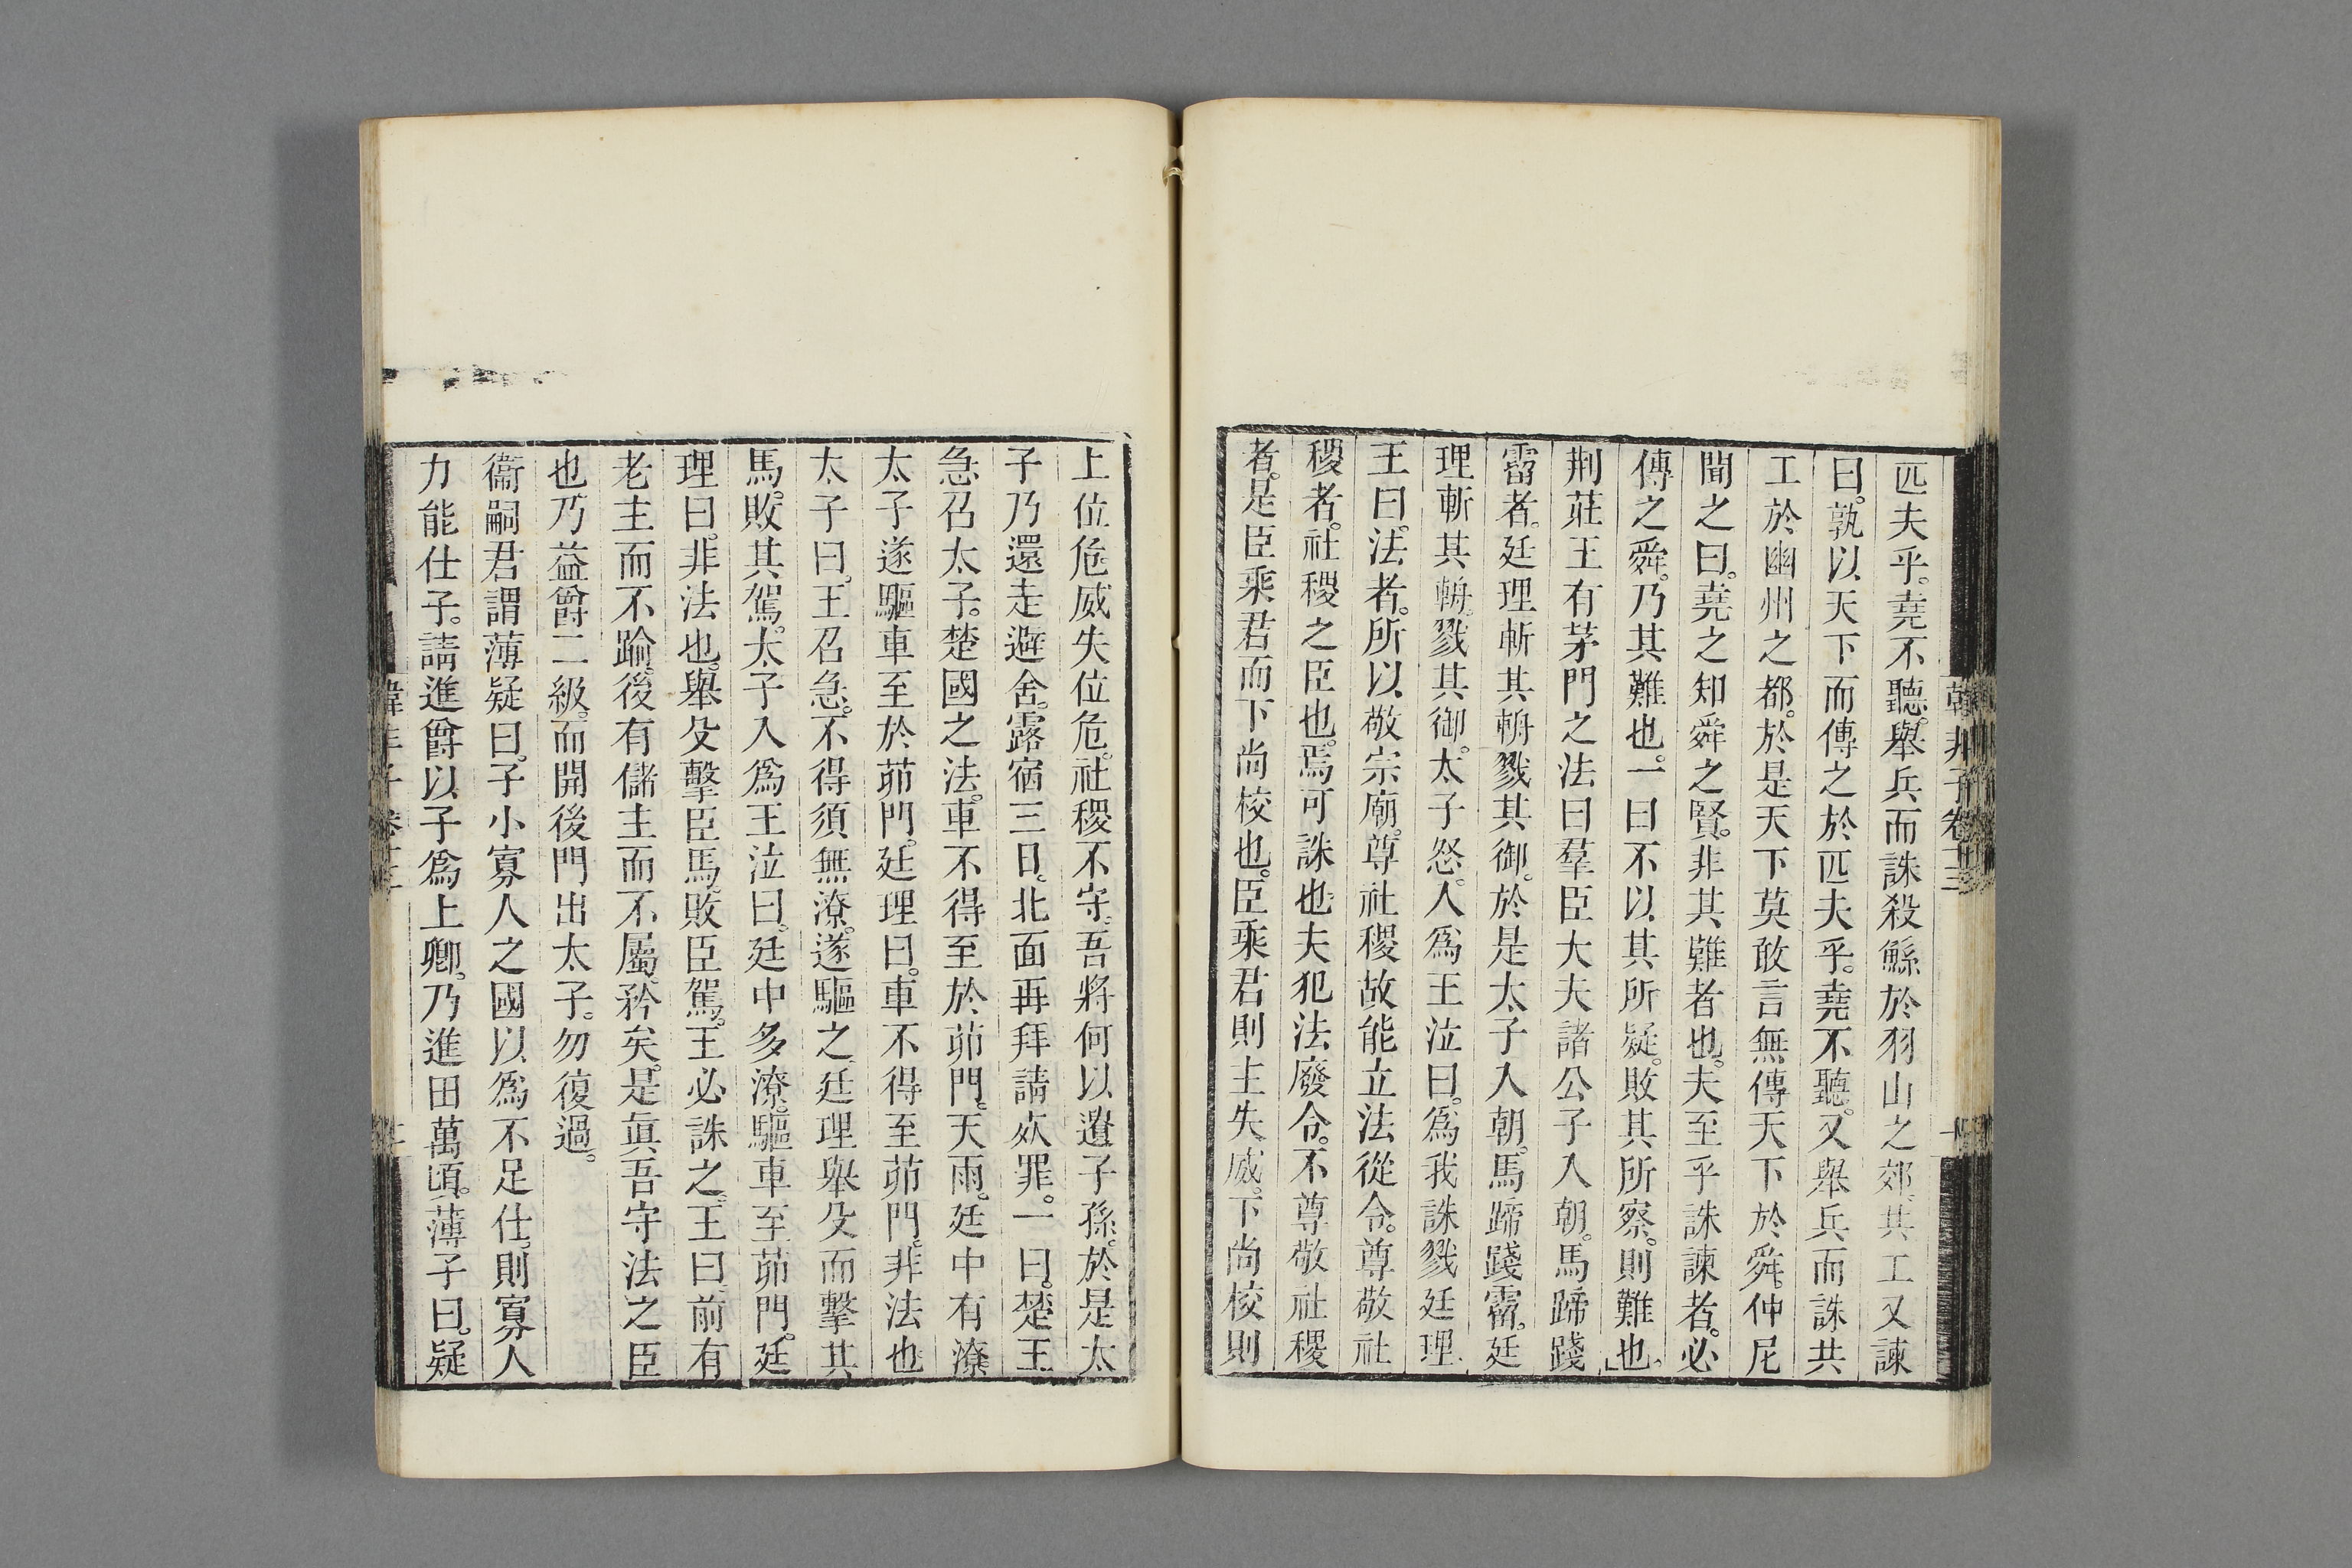 韓非子卷十三
匹夫乎。堯不聽。舉兵而誅殺鯀於羽山之郊。共工又諫
曰。孰以天下而傳之於匹夫乎。堯不聽。又舉兵而誅共
工於幽州之都。於是天下莫敢言無傳天下於舜。仲尼
聞之曰。堯之知舜之賢。非其難者也。夫至乎誅諫者。必
傳之舜。乃其難也。一曰不以其所疑。敗其所察。則難也。
荆莊王有茅門之法曰羣臣大夫諸公子入朝。馬蹄踐
霤者。廷理斬其輈戮其御。於是太子入朝。馬蹄踐霤。廷
理斬其輈。戮其御。太子怒。入爲王泣曰。爲我誅戮廷理。
王曰。法者。所以敬宗廟。尊社稷故能立法從令。尊敬社
稷者。社稷之臣也。焉可誅也夫犯法廢令。不尊敬社稷
者。是臣乘君而下尚校也。臣乘君則主失威。下尚校則
上位危威失位危。社稷不守。吾將何以遺子孫。於是太
子乃還走避舍。露宿三日。北面再拜請死罪。一曰。楚王
急召太子。楚國之法。車不得至於茆門。天雨。廷中有潦
太子遂驅車至於茆門。廷理曰。車不得至茆門。非法也
太子曰。王召急。不得須無潦。遂驅之。廷理舉殳而擊其
馬。敗其駕。太子入爲王泣曰。廷中多潦。驅車至茆門。廷
理曰。非法也。舉殳擊臣馬。敗臣駕。王必誅之。王曰。前有
老主而不踰。後有儲主而不屬。矜矣。是眞吾守法之臣
也乃益爵二級。而開後門出太子。勿復過。
衞嗣君謂薄疑曰。子小寡人之國以爲不足仕。則寡人
力能仕子。請進爵以子爲上卿。乃進田萬頃。薄子曰。疑